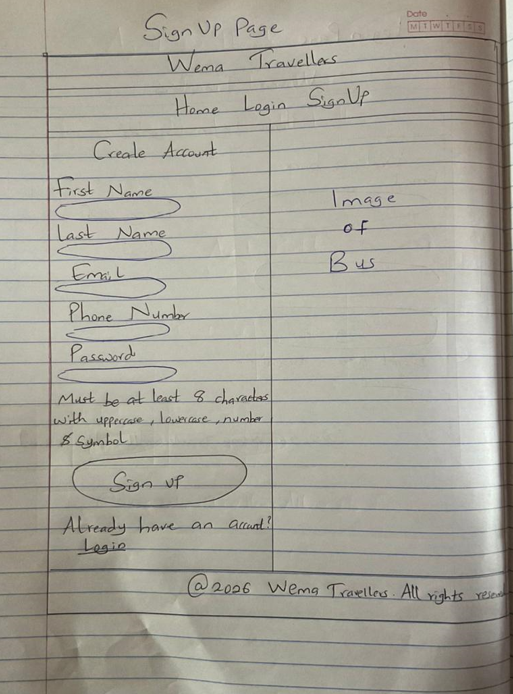 Date
M T W T F S S
Sign Up Page
Wema Travellers
Home Login SignUp
Create Account
First Name
Last Name
Email
Phone Number
Password
Must be at least 8 characters
with uppercase, lowercase, number
& symbol
Sign up
Already have an account?
Login
Image
of
Bus
@2026 Wema Travellers. All rights